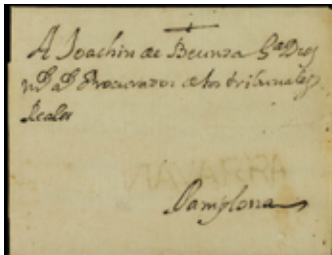 A Joachin de Beunza Gᵈᵉ Dios
mˢ aˢ Procurador de los tribunales
Reales
Pamplona